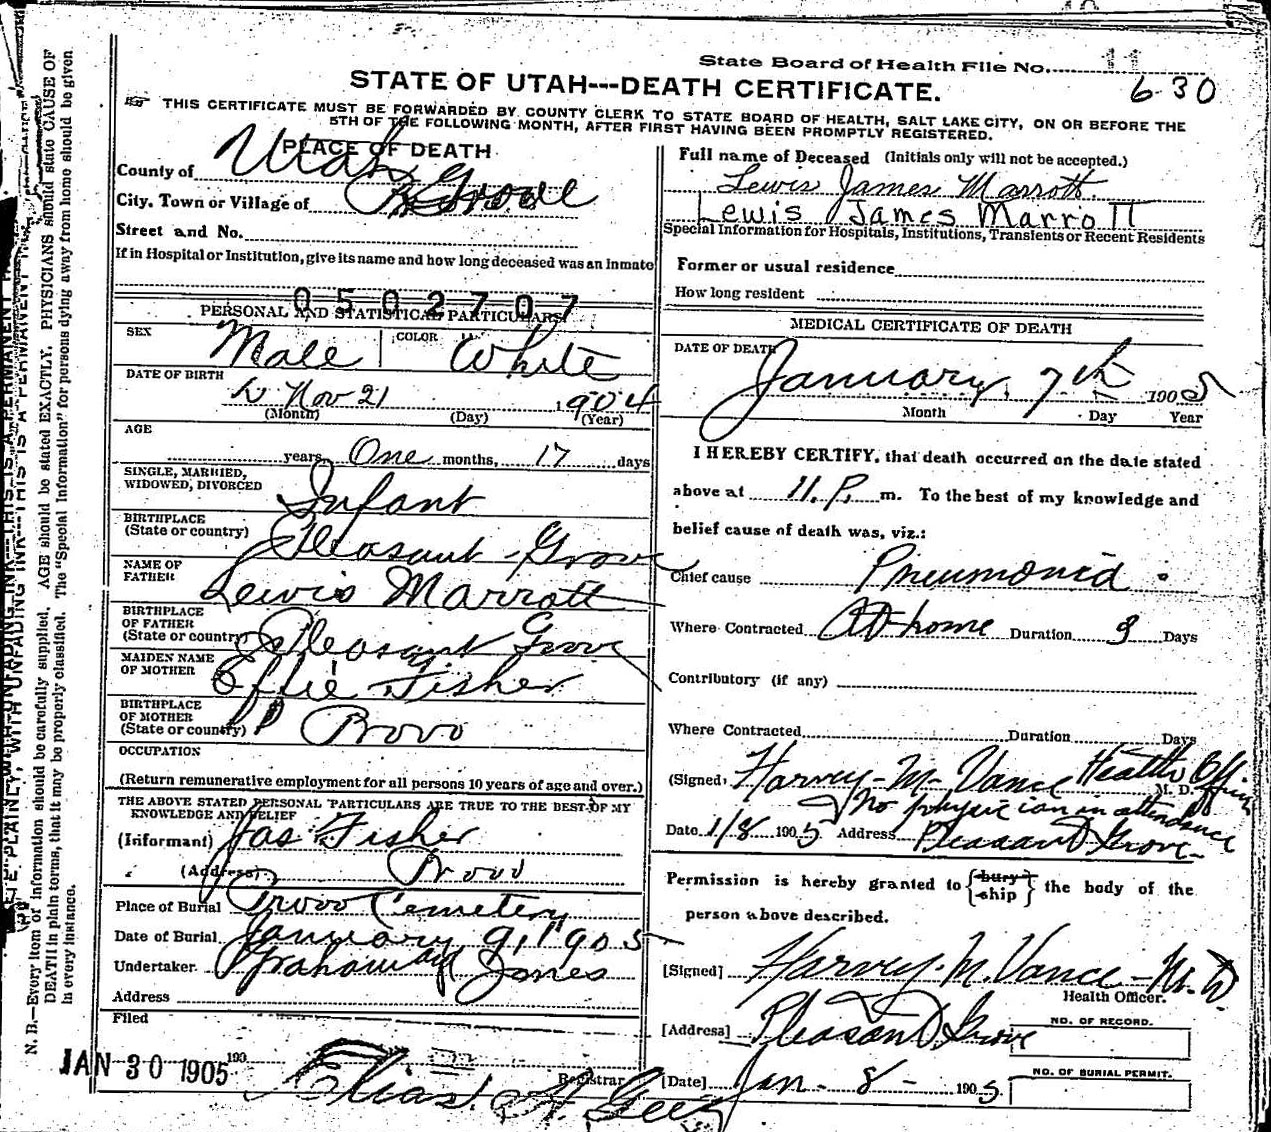 State Board of Health File No. 11
630
STATE OF UTAH---DEATH CERTIFICATE.
THIS CERTIFICATE MUST BE FORWARDED BY COUNTY CLERK TO STATE BOARD OF HEALTH, SALT LAKE CITY, ON OR BEFORE THE
5TH OF THE FOLLOWING MONTH, AFTER FIRST HAVING BEEN PROMPTLY REGISTERED.
PLACE OF DEATH
County of Utah
City, Town or Village of Grove
Street and No.
If in Hospital or Institution, give its name and how long deceased was an Inmate
0502707
PERSONAL AND STATISTICAL PARTICULARS
SEX Male COLOR White
DATE OF BIRTH
Nov 21 1904
(Month) (Day) (Year)
AGE
years, One months, 17 days
SINGLE, MARRIED,
WIDOWED, DIVORCED Infant
BIRTHPLACE
(State or country) Pleasant Grove
NAME OF
FATHER Lewis Marrott
BIRTHPLACE
OF FATHER
(State or country) Pleasant Grove
MAIDEN NAME
OF MOTHER Effie Fisher
BIRTHPLACE
OF MOTHER
(State or country) Provo
OCCUPATION
(Return remunerative employment for all persons 10 years of age and over.)
THE ABOVE STATED PERSONAL PARTICULARS ARE TRUE TO THE BEST OF MY
KNOWLEDGE AND BELIEF
(Informant) Jas Fisher
(Address) Provo
Place of Burial Provo Cemetery
Date of Burial January 9, 1905
Undertaker Jones
Address
Filed
JAN 30 1905 190
Elias Registrar
Full name of Deceased (Initials only will not be accepted.)
Lewis James Marrott.
Lewis James Marrott
Special Information for Hospitals, Institutions, Transients or Recent Residents
Former or usual residence
How long resident
MEDICAL CERTIFICATE OF DEATH
DATE OF DEATH
January 7th 1905
Month Day Year
I HEREBY CERTIFY, that death occurred on the date stated
above at 11.P. m. To the best of my knowledge and
belief cause of death was, viz.:
Chief cause Pneumonia
Where Contracted At home Duration 3 Days
Contributory (if any)
Where Contracted Duration Days
(Signed, Harvey M. Vance Health M. D.
No physician in attendance
Date 1/8 1905 Address Pleasant Grove
Permission is hereby granted to {bury ship} the body of the
person above described.
[Signed] Harvey M. Vance M.D
Health Officer.
[Address] Pleasant Grove
NO. OF RECORD.
[Date] Jan. 8 - 1905
NO. OF BURIAL PERMIT.
N. B.—Every item of information should be carefully supplied. AGE should be stated EXACTLY. PHYSICIANS should state CAUSE OF
DEATH in plain terms, that it may be properly classified. The "Special Information" for persons dying away from home should be given
in every instance.